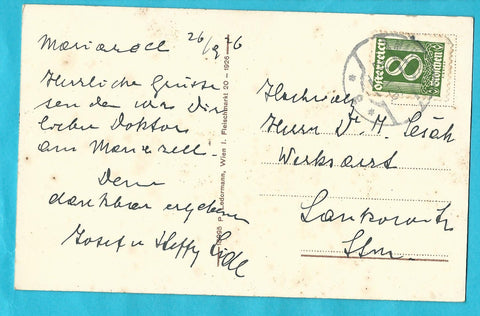 Mariazell 26/9 26
Herzliche Grüsse
senden wir Dir
lieber Doktor
aus Mariazell.
Deine
dankbar ergebenen
Josef u Steffy
10695 P. Ledermann, Wien I. Fleischmarkt 20 — 1926
Österreich
8
Groschen
Hochwohlg
Herrn Dr. H.
Werksarzt
Lankowitz
Stm.